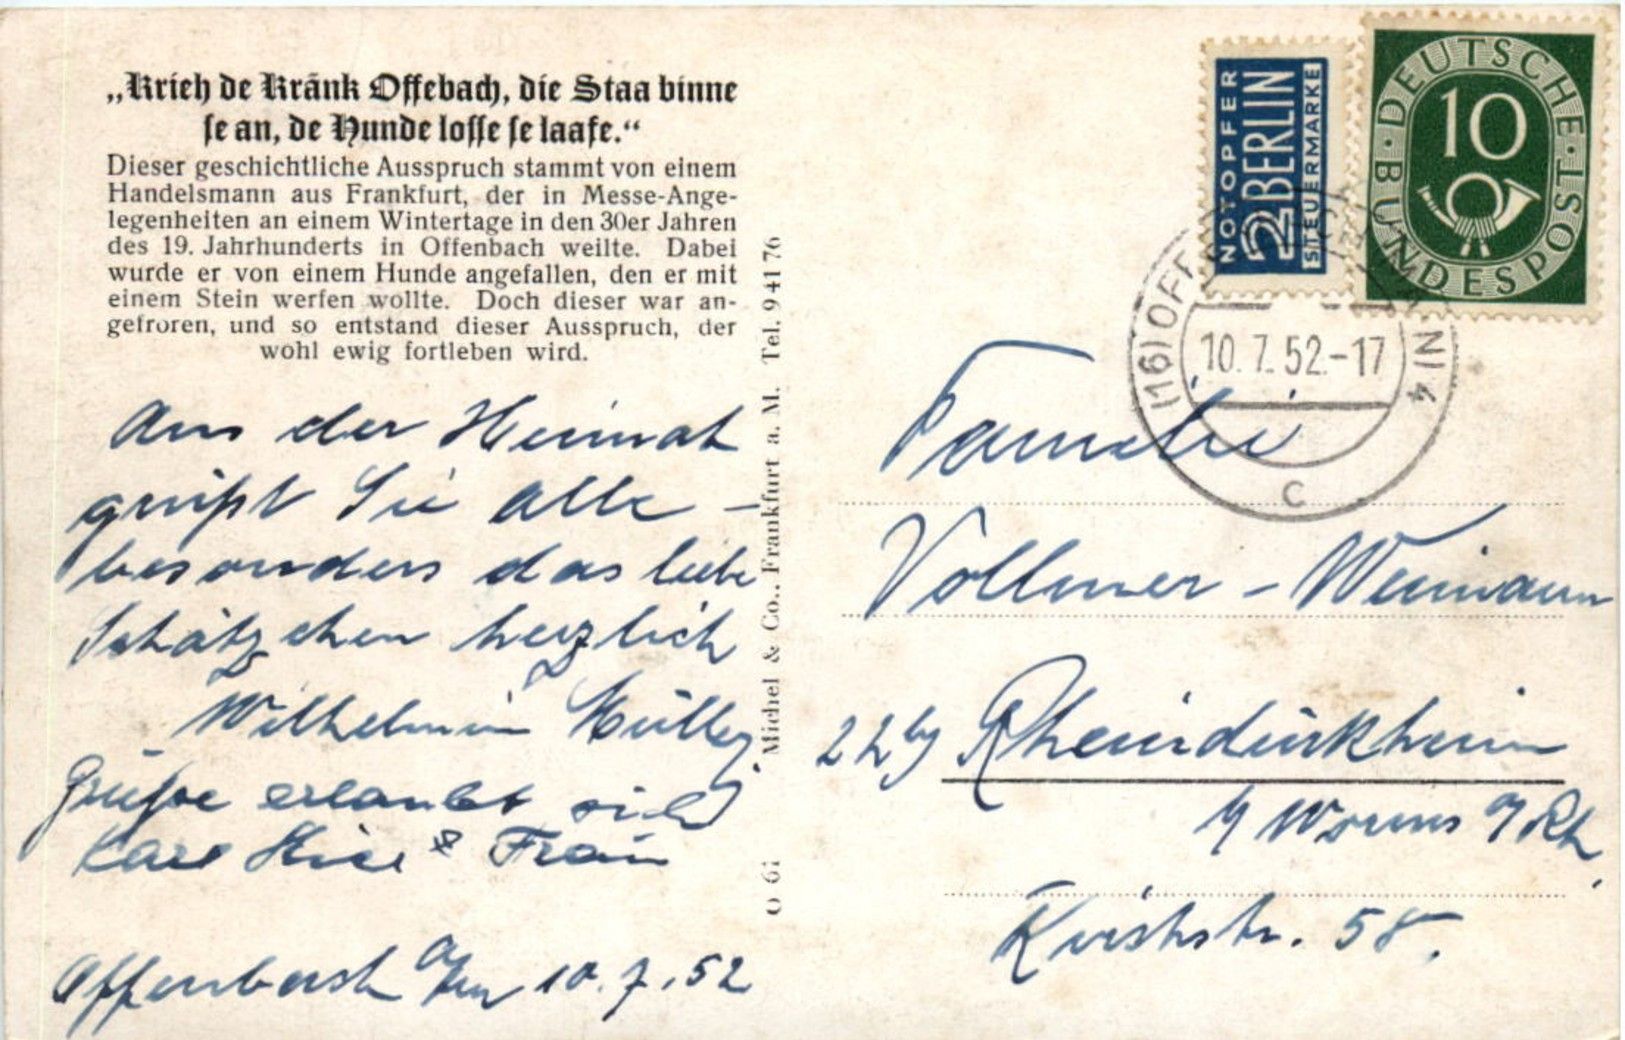 „Krieh de Kränk Offebach, die Staa binne
se an, de Hunde losse se laafe.“
Dieser geschichtliche Ausspruch stammt von einem
Handelsmann aus Frankfurt, der in Messe-Ange-
legenheiten an einem Wintertage in den 30er Jahren
des 19. Jahrhunderts in Offenbach weilte. Dabei
wurde er von einem Hunde angefallen, den er mit
einem Stein werfen wollte. Doch dieser war an-
gefroren, und so entstand dieser Ausspruch, der
wohl ewig fortleben wird.
Aus der Heimat
grüßt Sie alle -
besonders das liebe
Schätzchen herzlich
Wilhelmin Müller
Grüße erlaubt sich
Karl & Frau
Offenbach a/m 10.7.52
O 61 Michel & Co., Frankfurt a. M. Tel. 941 76
NOTOPFER
2 BERLIN
STEUERMARKE
DEUTSCHE
10
BUNDESPOST
(16) OFFENBACH (MAIN) 4
10.7.52.-17
c
Familie
Vollmer - Weimann
22b Rheindürkheim
b/ Worms a/Rh.
Kirchstr. 58.